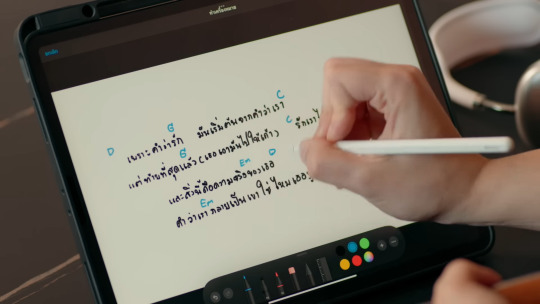 D G C
เพราะคำว่ารัก มันเริ่มต้นจากคำว่าเรา
G
แต่ท้ายที่สุดแล้ว เธอเอามันไปให้เขา รักเรา
Em D
และสิ่งนี้คือความจริงของเธอ
Em
คำว่าเรา กลายเป็นเขา ใช่ไหมเธอ